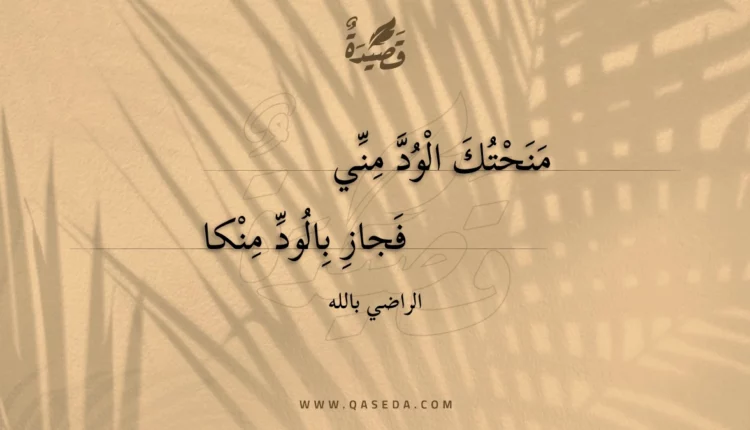 قَصِيْدَةٌ
مَنَحْتُكَ الْوُدَّ مِنِّي
فَجازِ بِالُودِّ مِنْكا
الراضي بالله
WWW.QASEDA.COM